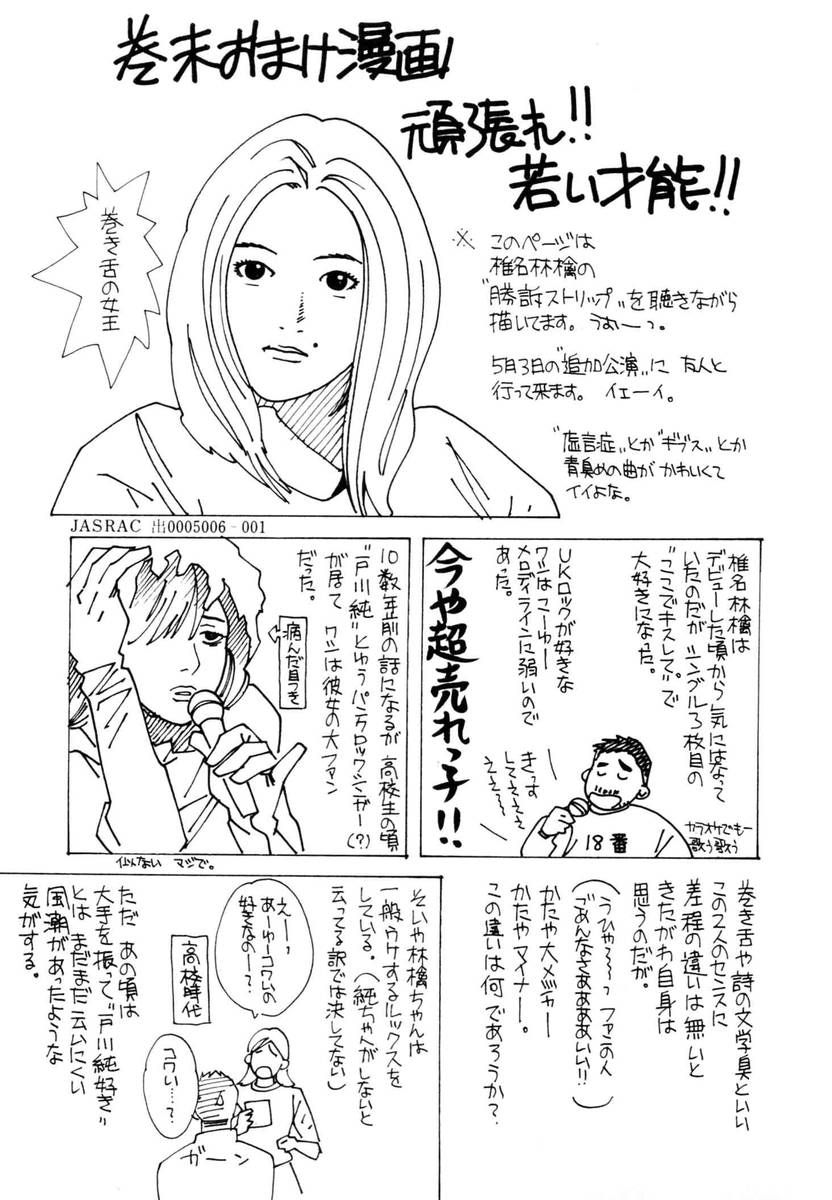 巻末おまけ漫画!
頑張れ!!
若い才能!!
巻き舌の女王
※ このページは
椎名林檎の
"勝訴ストリップ"を聴きながら
描いてます。うおーっ。
5月3日の"追加公演"に 友人と
行って来ます。 イェーイ。
"虚言症"とか"ギブス"とか
青臭めの曲が かわいくて
イイよな。
JASRAC 出0005006-001
椎名林檎は
デビューした頃から 気にはなって
いたのだが シングル3枚目の
"ここでキスして。"で
大好きになった。
UKロックが好きな
ワシはこーゆー
メロディラインに弱いので
あった。
今や超売れっ子!!
きっす
してえええ
ええ〜〜
18番
カラオケでもー
歌う歌う
10数年前の話になるが 高校生の頃
"戸川純"とゆうパンクロックシンガー(?)
が居て ワシは彼女の大ファン
だった。
病んだ目つき
似てない マジで。
巻き舌や詩の文学臭といい
この2人のセンスに
差程の違いは無いと
きたがわ自身は
思うのだが。
(うひゃ〜〜っ ファンの人
ごめんなさぁぁぁいい!!)
かたや大メジャー
かたやマイナー。
この違いは何であろうか?
そいや林檎ちゃんは
一般ウケするルックスを
している。(純ちゃんがしないと
云ってる訳では決してない)
えーー、
あーゆーコワムの
好きなのー??
高校時代
コワい…?
ガーン
ただ あの頃は
大手を振って"戸川純好き"
とは まだまだ云いにくい
風潮があったような
気がする。